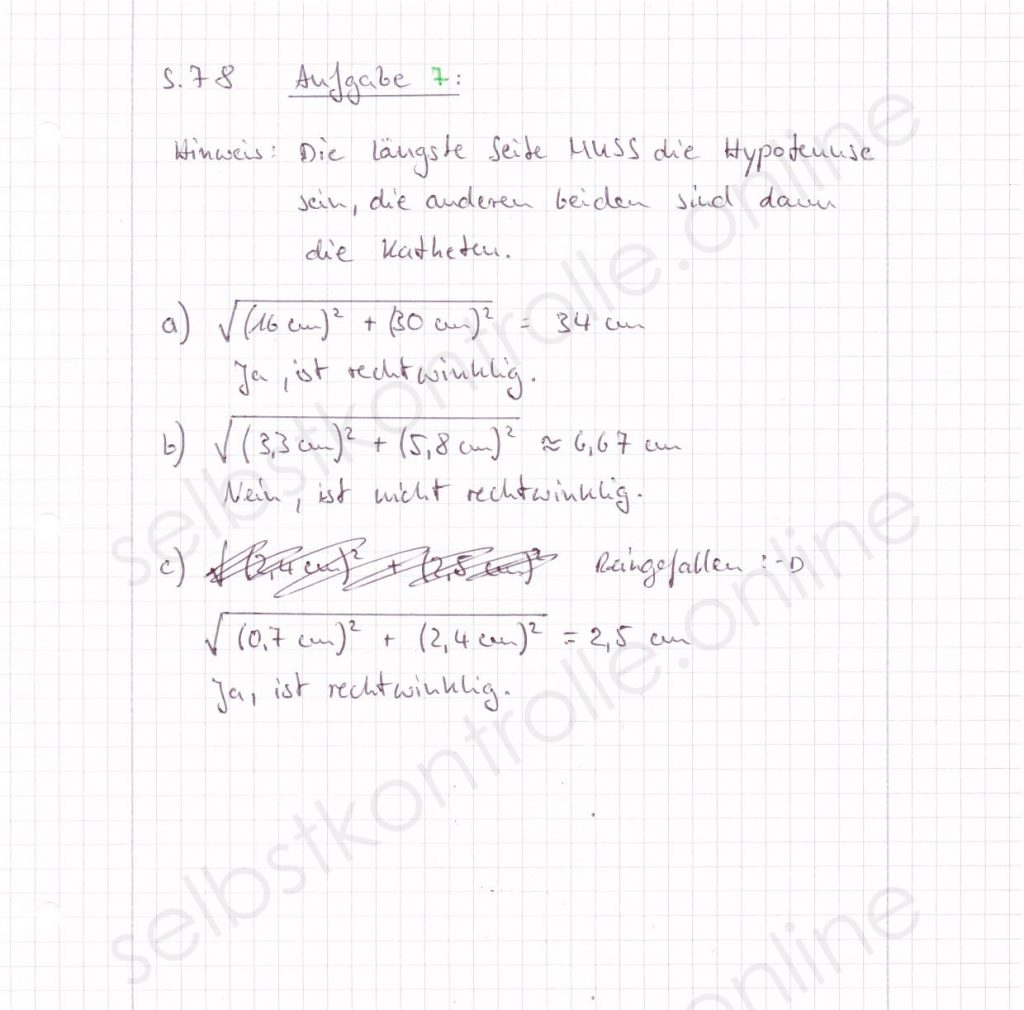 S. 78 Aufgabe 7:
Hinweis: Die längste Seite MUSS die Hypotenuse
sein, die anderen beiden sind dann
die Katheten.
a) √((16 cm)² + (30 cm)²) = 34 cm
Ja, ist rechtwinklig.
b) √((3,3 cm)² + (5,8 cm)²) ≈ 6,67 cm
Nein, ist nicht rechtwinklig.
c) √((2,4 cm)² + (2,5 cm)²) Reingefallen :-D
√((0,7 cm)² + (2,4 cm)²) = 2,5 cm
Ja, ist rechtwinklig.
selbstkontrolle.online
selbstkontrolle.online
online